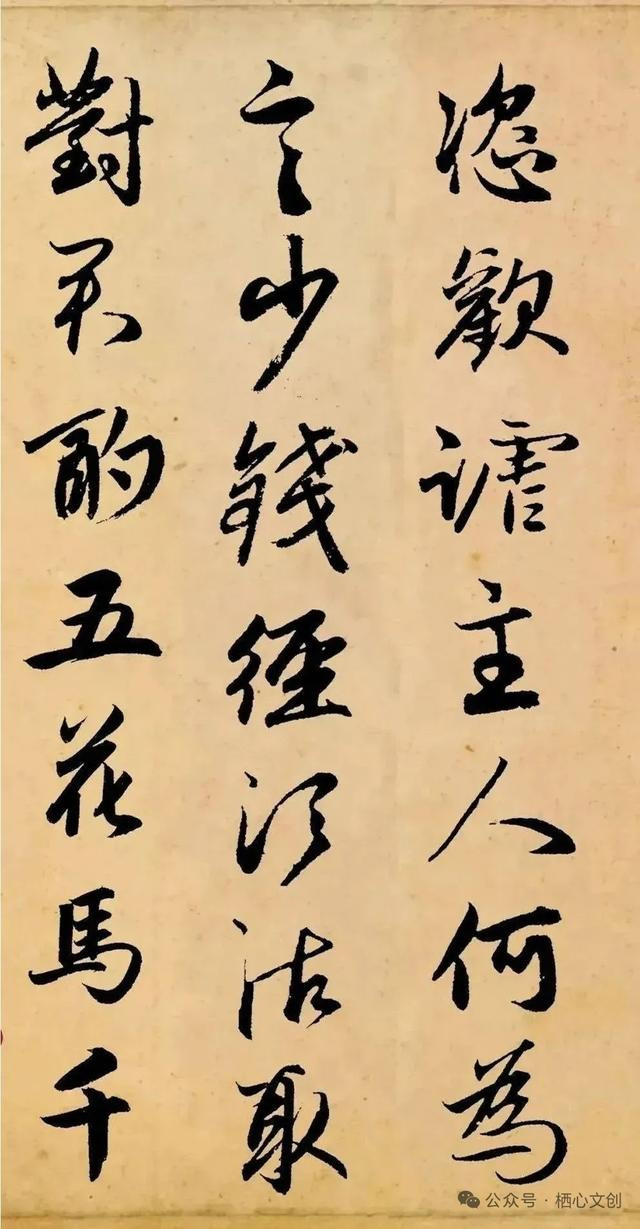 恣歡謔主人何為
言少錢徑須沽取
對君酌五花馬千
公众号·栖心文创